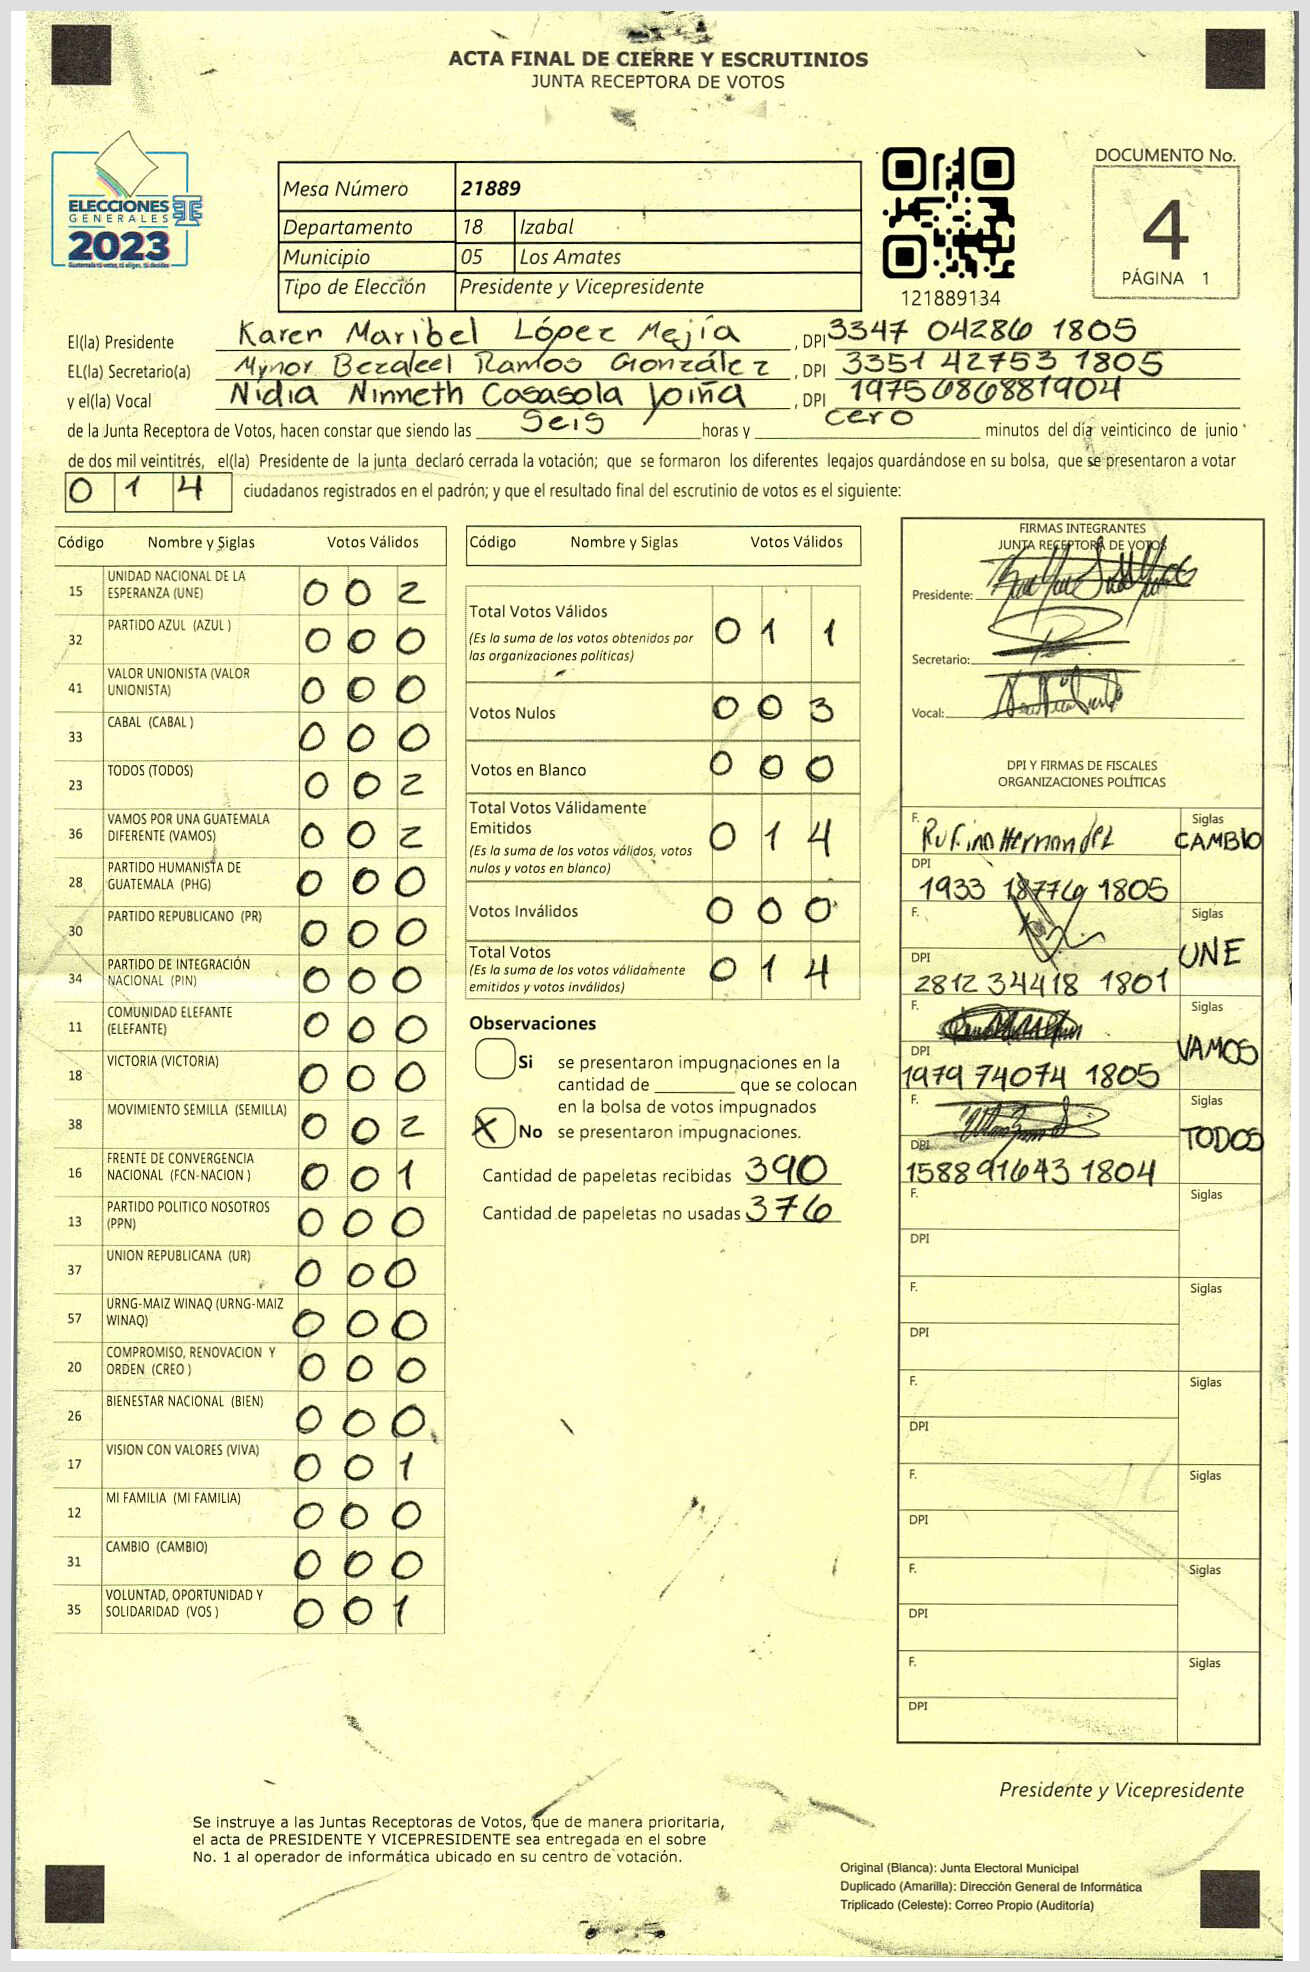 ACTA FINAL DE CIERRE Y ESCRUTINIOS
JUNTA RECEPTORA DE VOTOS
ELECCIONES
GENERALES
2023
Guatemala tú votas, tú eliges, tú decides
Mesa Número 21889
Departamento 18 Izabal
Municipio 05 Los Amates
Tipo de Elección Presidente y Vicepresidente
121889134
DOCUMENTO No.
4
PÁGINA 1
El(la) Presidente Karen Maribel López Mejía, DPI 3347 04286 1805
EL(la) Secretario(a) Mynor Bezaleel Ramos González, DPI 3351 42753 1805
y el(la) Vocal Nidia Ninneth Casasola, DPI 1975686881904
de la Junta Receptora de Votos, hacen constar que siendo las seis horas y cero minutos del día veinticinco de junio
de dos mil veintitrés, el(la) Presidente de la junta declaró cerrada la votación; que se formaron los diferentes legajos guardándose en su bolsa, que se presentaron a votar
0 1 4 ciudadanos registrados en el padrón; y que el resultado final del escrutinio de votos es el siguiente:
Código Nombre y Siglas Votos Válidos
15 UNIDAD NACIONAL DE LA ESPERANZA (UNE) 0 0 2
32 PARTIDO AZUL (AZUL ) 0 0 0
41 VALOR UNIONISTA (VALOR UNIONISTA) 0 0 0
33 CABAL (CABAL ) 0 0 0
23 TODOS (TODOS) 0 0 2
36 VAMOS POR UNA GUATEMALA DIFERENTE (VAMOS) 0 0 2
28 PARTIDO HUMANISTA DE GUATEMALA (PHG) 0 0 0
30 PARTIDO REPUBLICANO (PR) 0 0 0
34 PARTIDO DE INTEGRACIÓN NACIONAL (PIN) 0 0 0
11 COMUNIDAD ELEFANTE (ELEFANTE) 0 0 0
18 VICTORIA (VICTORIA) 0 0 0
38 MOVIMIENTO SEMILLA (SEMILLA) 0 0 2
16 FRENTE DE CONVERGENCIA NACIONAL (FCN-NACION ) 0 0 1
13 PARTIDO POLITICO NOSOTROS (PPN) 0 0 0
37 UNION REPUBLICANA (UR) 0 0 0
57 URNG-MAIZ WINAQ (URNG-MAIZ WINAQ) 0 0 0
20 COMPROMISO, RENOVACION Y ORDEN (CREO ) 0 0 0
26 BIENESTAR NACIONAL (BIEN) 0 0 0
17 VISION CON VALORES (VIVA) 0 0 1
12 MI FAMILIA (MI FAMILIA) 0 0 0
31 CAMBIO (CAMBIO) 0 0 0
35 VOLUNTAD, OPORTUNIDAD Y SOLIDARIDAD (VOS ) 0 0 1
Código Nombre y Siglas Votos Válidos
Total Votos Válidos 0 1 1
(Es la suma de los votos obtenidos por
las organizaciones políticas)
Votos Nulos 0 0 3
Votos en Blanco 0 0 0
Total Votos Válidamente
Emitidos 0 1 4
(Es la suma de los votos válidos, votos
nulos y votos en blanco)
Votos Inválidos 0 0 0
Total Votos 0 1 4
(Es la suma de los votos válidamente
emitidos y votos inválidos)
Observaciones
Si se presentaron impugnaciones en la
cantidad de ________ que se colocan
en la bolsa de votos impugnados
X No se presentaron impugnaciones.
Cantidad de papeletas recibidas 390
Cantidad de papeletas no usadas 376
FIRMAS INTEGRANTES
JUNTA RECEPTORA DE VOTOS
Presidente:
Secretario:
Vocal:
DPI Y FIRMAS DE FISCALES
ORGANIZACIONES POLÍTICAS
F. Rufino Hernandez Siglas CAMBIO
DPI 1933 18776 1805
F. Siglas UNE
DPI 2812 34418 1801
F. Siglas VAMOS
DPI 1979 74074 1805
F. Siglas TODOS
DPI 1588 91643 1804
F. Siglas
DPI
F. Siglas
DPI
F. Siglas
DPI
F. Siglas
DPI
F. Siglas
DPI
F. Siglas
DPI
Presidente y Vicepresidente
Se instruye a las Juntas Receptoras de Votos, que de manera prioritaria,
el acta de PRESIDENTE Y VICEPRESIDENTE sea entregada en el sobre
No. 1 al operador de informática ubicado en su centro de votación.
Original (Blanca): Junta Electoral Municipal
Duplicado (Amarilla): Dirección General de Informática
Triplicado (Celeste): Correo Propio (Auditoría)